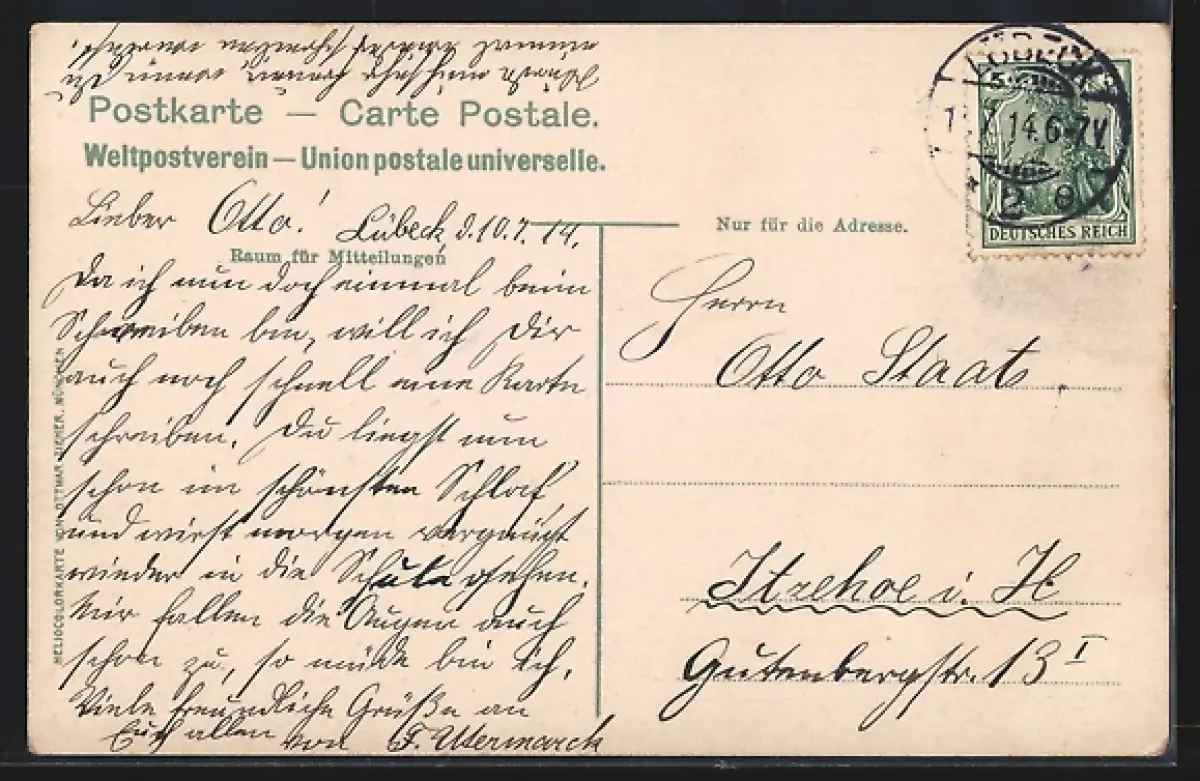 Postkarte — Carte Postale.
Weltpostverein — Union postale universelle.
Lieber Otto! Lübeck, d. 10.7.14.
Raum für Mitteilungen
Da ich nun doch einmal beim
Schreiben bin, will ich Dir
auch noch schnell eine Karte
schreiben. Du liegst nun
schon im schönsten Schlaf
und wirst morgen vergnügt
wieder in die Schule gehen.
Mir fallen die Augen auch
schon zu, so müde bin ich.
Viele freundliche Grüße an
Euch allen von F. Utermarck
würde mich sehr freuen, wenn Du
einmal
HELIOCOLORKARTE VON OTTMAR ZIEHER, MÜNCHEN
Nur für die Adresse.
LÜBECK
14.6-7V.
* 2 e
DEUTSCHES REICH
Herrn
Otto Staats.
Itzehoe i. H
Gutenbergstr. 13 I